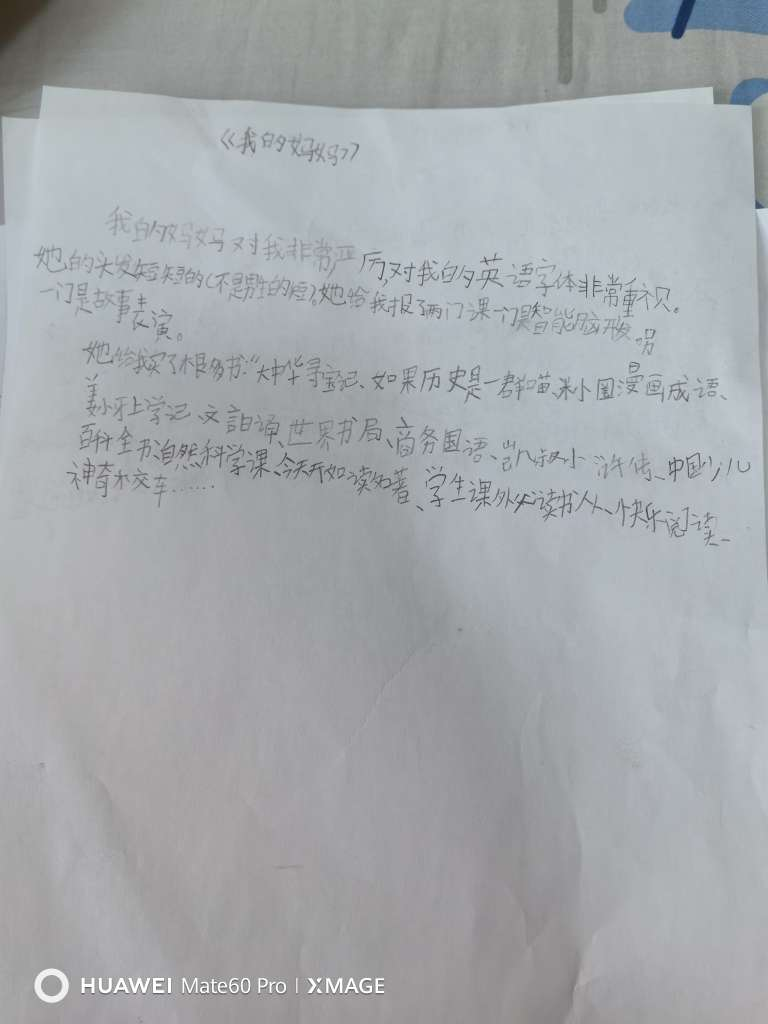 《我的妈妈》
我的妈妈对我非常严厉,对我的英语字体非常重视。
她的头发短短的(不是男生的短),她给我报了两门课一门是智能脑破,另
一门是故事表演。
她给我买了很多书:“大中华寻宝记、如果历史是一群喵、米小圈漫画成语、
姜小牙上学记、文言诵、世界书局、商务国语、凯叔水浒传、中国少儿
百科全书、自然科学课、今天开如读名著、学生课外必读书从、快乐阅读、
神奇木交车……
HUAWEI Mate60 Pro | XMAGE